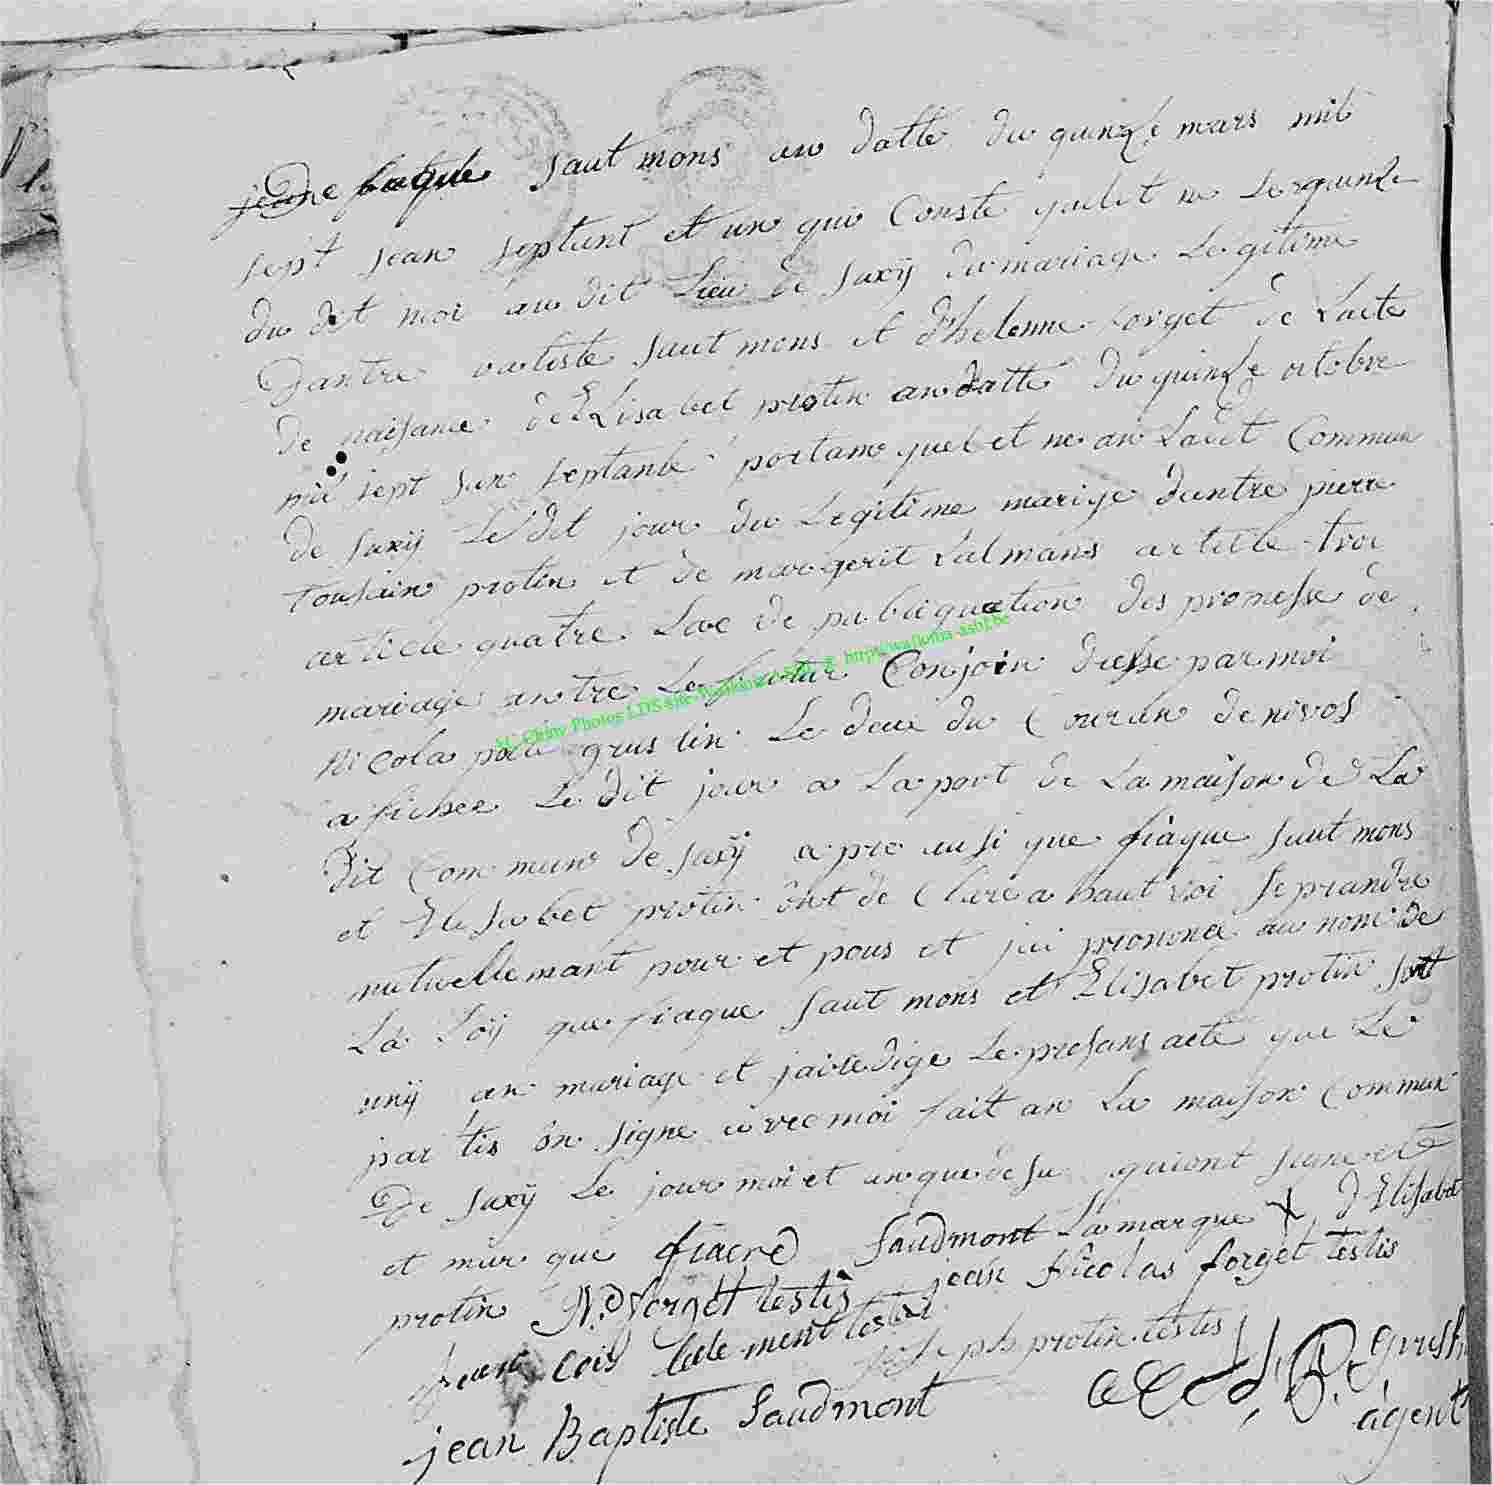 jeane baqule Saut mons au datte du quinze mars mil
sept sean septant et un qui Conste quelit ne le quinze
du dit moi au dit Lieu de Suxÿ du mariage Legitime
Dantre batiste Saut mons et d'helenne forget de Lacte
de naisance de Elisabet protin andatte du quinze octobre
mil sept san septante portans quel et ne an Ladit Commun
de Suxÿ Ledit jour du Legitime mariage dantre pierre
tousain protin et de margerit Lalmans article troi
article quatre Lac de publiquation des promesse de
mariage antre Le futur Conjoin dresse par moi
Nicola gruslin Le deux du Couran de nivos
afichee Le dit jour a La port de La maison de La
dit Commun de Suxÿ apre ausi que fiaque Saut mons
et Elisabet protin ont de Clare a haut voi Se prandre
mutuellemant pour et pous et jai prononce au nom de
La Loÿ que fiaque Saut mons et Elisabet protin sont
unÿ an mariage et jai redige Le presans acte que Le
partis on signe avec moi fait an La maison Commun
De Suxÿ Le jour moi et an que desu qui ont signe
et mar que fiacre Saudmont La marque X d'Elisabet
protin N. D forget testis jean Nicolas forget testis
testis
joseph protin testis
jean Baptiste Saudmont
agent
M. Cleiny Photos LDS site Wallonia ASBL @ http://wallonia-asbl.be